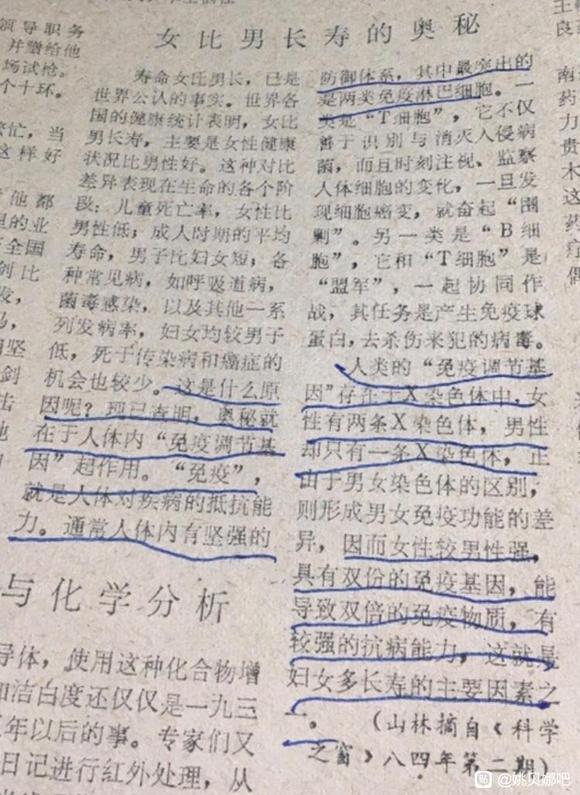 领导职务
并赠给他
场试枪。
个十环。
繁忙，当
这样好
女比男长寿的奥秘
寿命女比男长，已是
世界公认的事实。世界各
国的健康统计表明，女比
男长寿，主要是女性健康
状况比男性好。这种对比
差异表现在生命的各个阶
段：儿童死亡率，女性比
男性低；成人时期的平均
寿命，男子比妇女短；各
种常见病，如呼吸道病，
菌毒感染，以及其他一系
列发病率，妇女均较男子
低，死于传染病和癌症的
机会也较少。这是什么原
因呢？现已查明，奥秘就
在于人体内“免疫调节基
因”起作用。“免疫”，
就是人体对疾病的抵抗能
力。通常人体内有坚强的
防御体系，其中最突出的
是两类免疫淋巴细胞。一
类是“T细胞”，它不仅
善于识别与消灭入侵病
菌，而且时刻注视、监察
人体细胞的变化，一旦发
现细胞癌变，就奋起“围
剿”。另一类是“B细
胞”，它和“T细胞”是
“盟军”，一起协同作
战，其任务是产生免疫球
蛋白，去杀伤来犯的病毒。
人类的“免疫调节基
因”存在于X染色体中，女
性有两条X染色体，男性
却只有一条X染色体，正
由于男女染色体的区别，
则形成男女免疫功能的差
异，因而女性较男性强，
具有双份的免疫基因，能
导致双倍的免疫物质，有
较强的抗病能力，这就是
妇女多长寿的主要因素之
一。
（山林摘自《科学
之窗》八四年第二期）
与化学分析
导体，使用这种化合物增
和洁白度还仅仅是一九三
年以后的事。专家们又
日记进行红外处理，从
贴 @姚贝娜吧